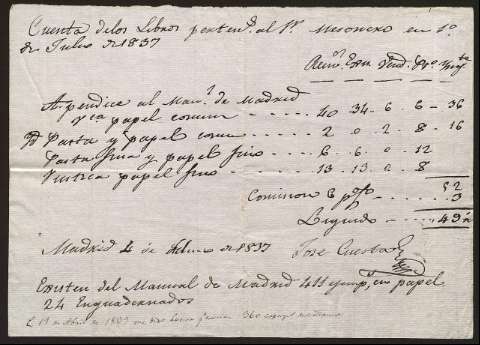 Cuenta de los Libros pertents. al Sr. Mesonero en 1º
de Julio de 1837
Exn. Vend. Pro. Impte
Apendice al Manl. de Madrid
rca papel comun - - - - 40 . 34 . 6 . 6 - 36
Yd Pasta y papel comn - - - - 2 . 0 . 2 . 8 - 16
Pasta fina y papel fino - - - 6 . 6 . 0 . 12
Rustica papel fino - - - - - 13 . 13 . 0 . 8
Comision 6 p% - - - - 52
3
Liquido - - - - - 49
Madrid 4 de de 1837 Jose Cuesta
Existen del Manual de Madrid 411 ejemps. en papel
24 Enquadernados
de Abril de 360